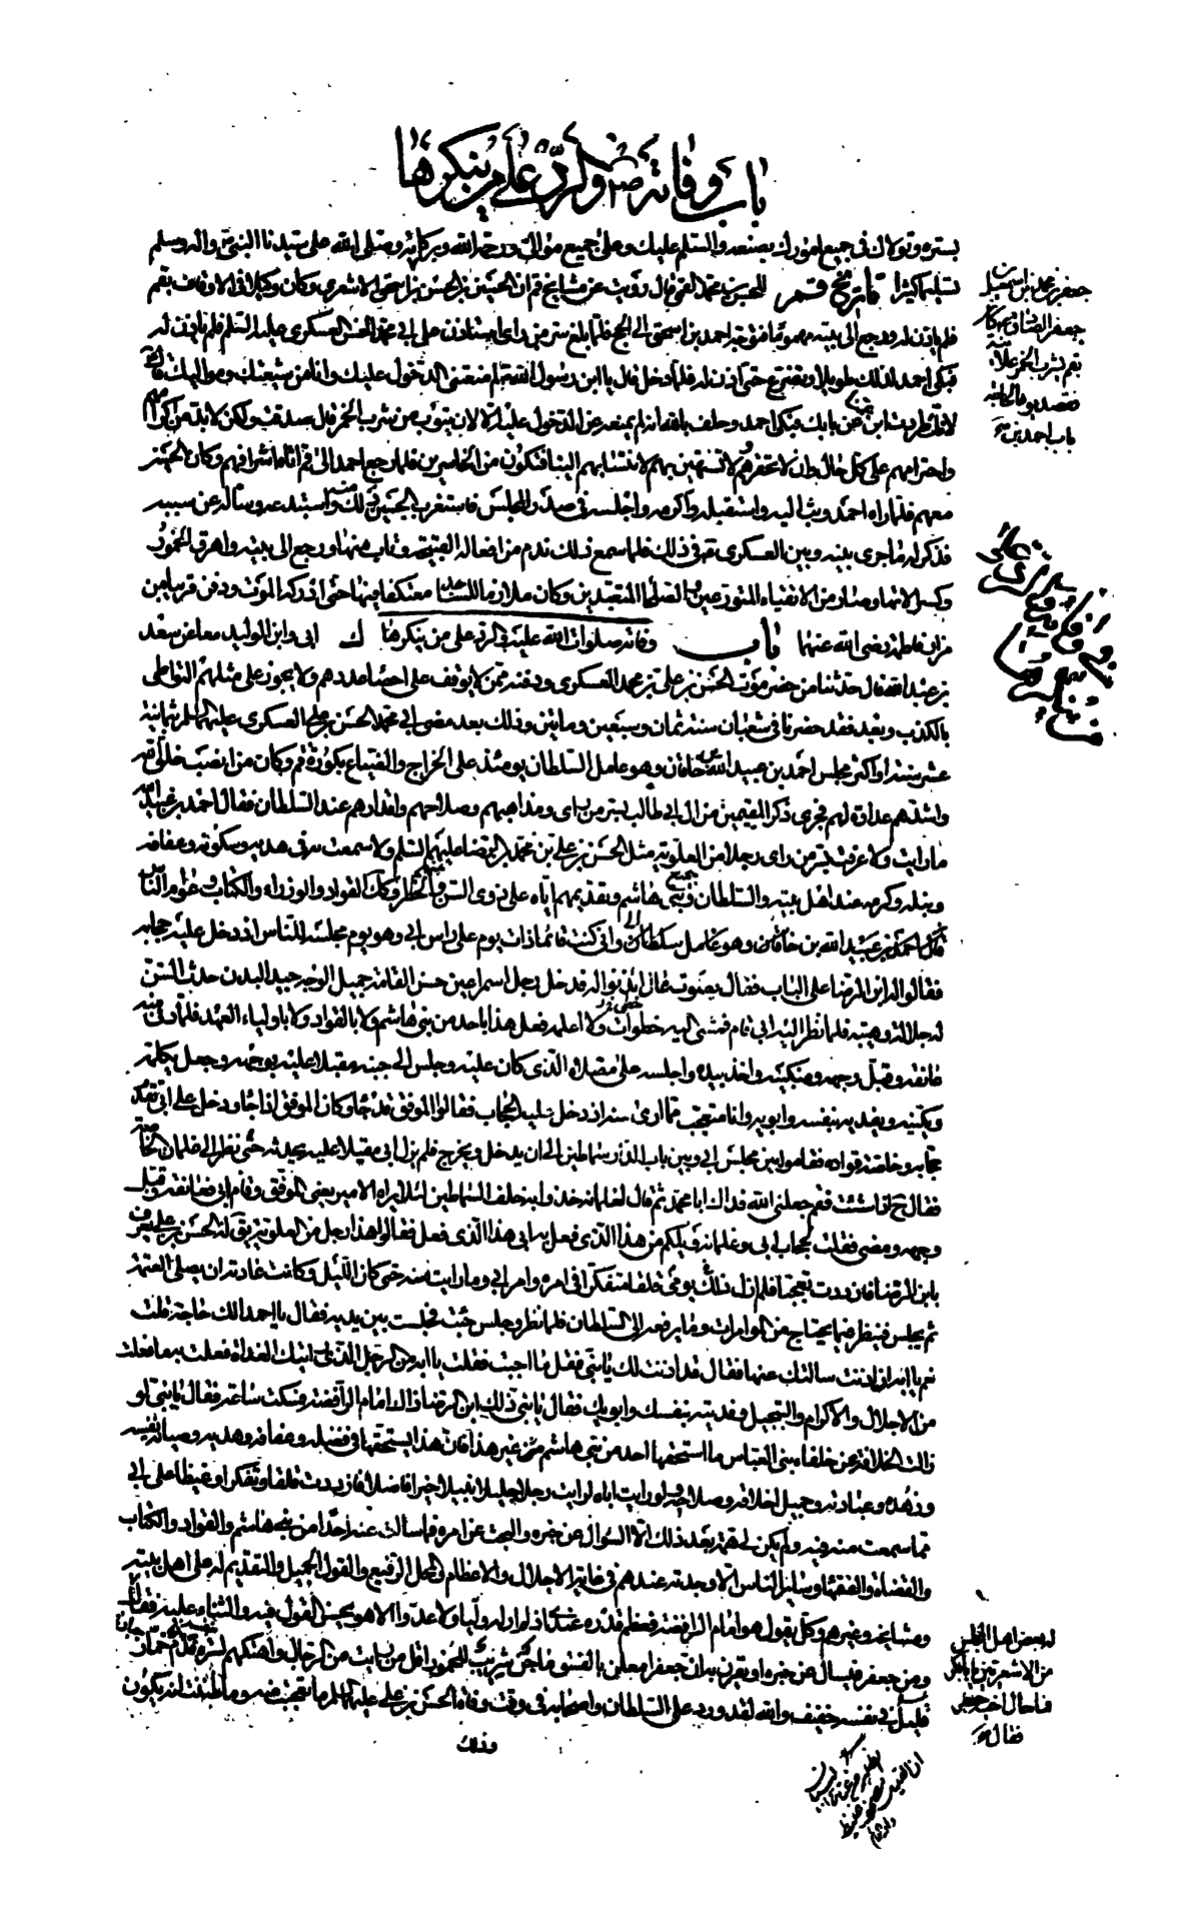 باب وفاته ص والرد على من ينكرها
بستره وتولاك في جميع امورك بصنعه والسلم عليك وعلى جميع موالي ورحمة الله وبركاته وصلى الله على سيدنا النبي واله وسلم
تسليما كثيرا تاريخ قم للحسن بن محمد القمي قال رويت عن مشايخ قم ان الحسين بن الحسن بن كان بقم
فلم ياذن له ورجع الى بيته مهموما فتوجه احمد بن اسحق الى الحج فلما بلغ سر من راى استاذن على ابي محمد الحسن العسكري عليه السلم فلم ياذن له
فبكى احمد لذلك طويلا وتضرع حتى اذن له فلما دخل قال يا ابن رسول الله لم منعتني الدخول عليك وانا من شيعتك ومواليك قال ع
لانك طردت ابن عمنا عن بابك فبكى احمد وحلف بالله انه لم يمنعه عن الدخول عليه الا لان يتوب من شرب الخمر قال صدقت ولكن لا بد من اكرامهم
واحترامهم على كل حال وان لا تحقرهم ولا تستهين بهم لانتسابهم الينا فتكون من الخاسرين فلما رجع احمد الى قم اتاه اشرافهم وكان الحسين
معهم فلما راه احمد وثب اليه واستقبله واكرمه واجلسه في صدر المجلس فاستغرب الحسين ذلك منه واستبدعه وساله عن سببه
فذكر له ما جرى بينه وبين العسكري ع في ذلك فلما سمع ذلك ندم من افعاله القبيحة وتاب منها ورجع الى بيته واهرق الخمور
وكسر الاتها وصار من الاتقياء المتورعين والصلحاء المتعبدين وكان ملازما للمساجد معتكفا فيها حتى ادركه الموت ودفن قريبا من
مزار فاطمة رضي الله عنهما باب وفاته صلوات الله عليه والرد على من ينكرها ك ابي وابن الوليد معا عن سعد
بن عبد الله قال حدثنا من حضر موت الحسن بن علي بن محمد العسكري ودفنه ممن لا يوقف على احصاء عددهم ولا يجوز على مثلهم التواطي
بالكذب وبعد فقد حضرنا في شعبان سنة ثمان وسبعين ومايتين وذلك بعد مضي ابي محمد الحسن بن علي العسكري عليهما السلم بثمانية
عشر سنة او اكثر مجلس احمد بن عبيد الله بن خاقان وهو عامل السلطان يومئذ على الخراج والضياع بكورة قم وكان من انصب خلق الله
واشدهم عداوة لهم فجرى ذكر المقيمين من ال ابي طالب بسر من راى ومذاهبهم وصلاحهم واقدارهم عند السلطان فقال احمد بن عبيد الله
ما رايت ولا عرفت بسر من راى رجلا من العلوية مثل الحسن بن علي بن محمد بن الرضا عليهم السلم ولا سمعت به في هديه وسكونه وعفافه
ونبله وكرمه عند اهل بيته والسلطان وجميع بني هاشم وتقديمهم اياه على ذوي السن منهم والخطر وكذلك القواد والوزراء والكتاب وعوام الناس
قال احمد بن عبيد الله بن خاقان واني كنت قائما ذات يوم على راس ابي وهو يوم مجلسه للناس اذ دخل عليه حجابه
فقالوا له ابن الرضا على الباب فقال بصوت عال ائذنوا له فدخل رجل اسمر اعين حسن القامة جميل الوجه جيد البدن حدث السن
له جلالة وهيبة فلما نظر اليه ابي قام فمشى اليه خطوات ولا اعلمه فعل هذا باحد من بني هاشم ولا بالقواد ولا باولياء العهد فلما دنى منه
عانقه وقبل وجهه ومنكبيه واخذ بيده واجلسه على مصلاه الذي كان عليه وجلس الى جنبه مقبلا عليه بوجهه وجعل يكلمه
ويكنيه ويفديه بنفسه وابويه وانا متعجب مما ارى منه اذ دخل عليه الحجاب فقالوا الموفق قد جاء وكان الموفق اذا جاء ودخل على ابي تقدم
حجابه وخاصة قواده فقاموا بين مجلس ابي وبين باب الدار سماطين الى ان يدخل ويخرج فلم يزل ابي مقبلا عليه يحدثه حتى نظر الى غلمان الخاصة
فقال ح اذا شئت فقم جعلني الله فداك ابا محمد ثم قال لغلمانه خذوا به خلف السماطين لئلا يراه الامير يعني الموفق وقام ابي فعانقه وقبل
وجهه ومضى فقلت لحجاب ابي وغلمانه ويلكم من هذا الذي فعل به ابي هذا الذي فعل فقالوا هذا رجل من العلوية يق له الحسن بن علي يعرف
بابن الرضا فازددت تعجبا فلم ازل يومي ذلك قلقا متفكرا في امره وامر ابي وما رايت منه حتى كان الليل وكانت عادته ان يصلي العتمة
ثم يجلس فينظر فيما يحتاج من الموامرات وما يرفعه الى السلطان فلما نظر وجلس جئت فجلست بين يديه فقال يا احمد الك حاجة قلت
نعم يا ابه ان اذنت سالتك عنها فقال قد اذنت لك يا بني فقل ما احببت فقلت يا ابه من الرجل الذي اتيك الغداة فعلت به ما فعلت
من الاجلال والاكرام والتبجيل وفديته بنفسك وابويك فقال يا بني ذلك ابن الرضا ذاك امام الرافضة فسكت ساعة فقال يا بني لو
زالت الخلافة عن خلفاء بني العباس ما استحقها احد من بني هاشم غير هذا فان هذا يستحقها في فضله وعفافه وهديه وصيانة نفسه
وزهده وعبادته وجميل اخلاقه وصلاحه ولو رايت اباه لرايت رجلا جليلا نبيلا خيرا فاضلا فازددت قلقا وتفكرا وغيظا على ابي
مما سمعت منه فيه ولم يكن لي همة بعد ذلك الا السؤال عن خبره والبحث عن امره فما سالت عنه احدا من بني هاشم والقواد والكتاب
والقضاة والفقهاء وسائر الناس الا وجدته عندهم في غاية الاجلال والاعظام والمحل الرفيع والقول الجميل والتقديم له على اهل بيته
ومشايخه وغيرهم وكل يقول هو امام الرافضة فعظم قدره عندي اذ لم ار له وليا ولا عدوا الا وهو يحسن القول فيه والثناء عليه فقال
ومن جعفر فيسال عن خبره او يقرن به ان جعفرا معلن بالفسق ماجن شريب للخمور اقل من رايت من الرجال واهتكهم لستره قدم خمار
قليل في نفسه خفيف والله لقد ورد على السلطان واصحابه في وقت وفاة الحسن بن علي عليهما السلم ما تعجبت منه وما ظننت انه يكون
وذلك
جعفر بن محمد بن اسمعيل
جعفر الصادق ع كان
بقم يشرب الخمر علانية
فقصد يوما لحاجة
باب احمد بن
له بعض اهل المجلس
من الاشعريين يا ابا بكر
فما حال اخيه جعفر
فقال